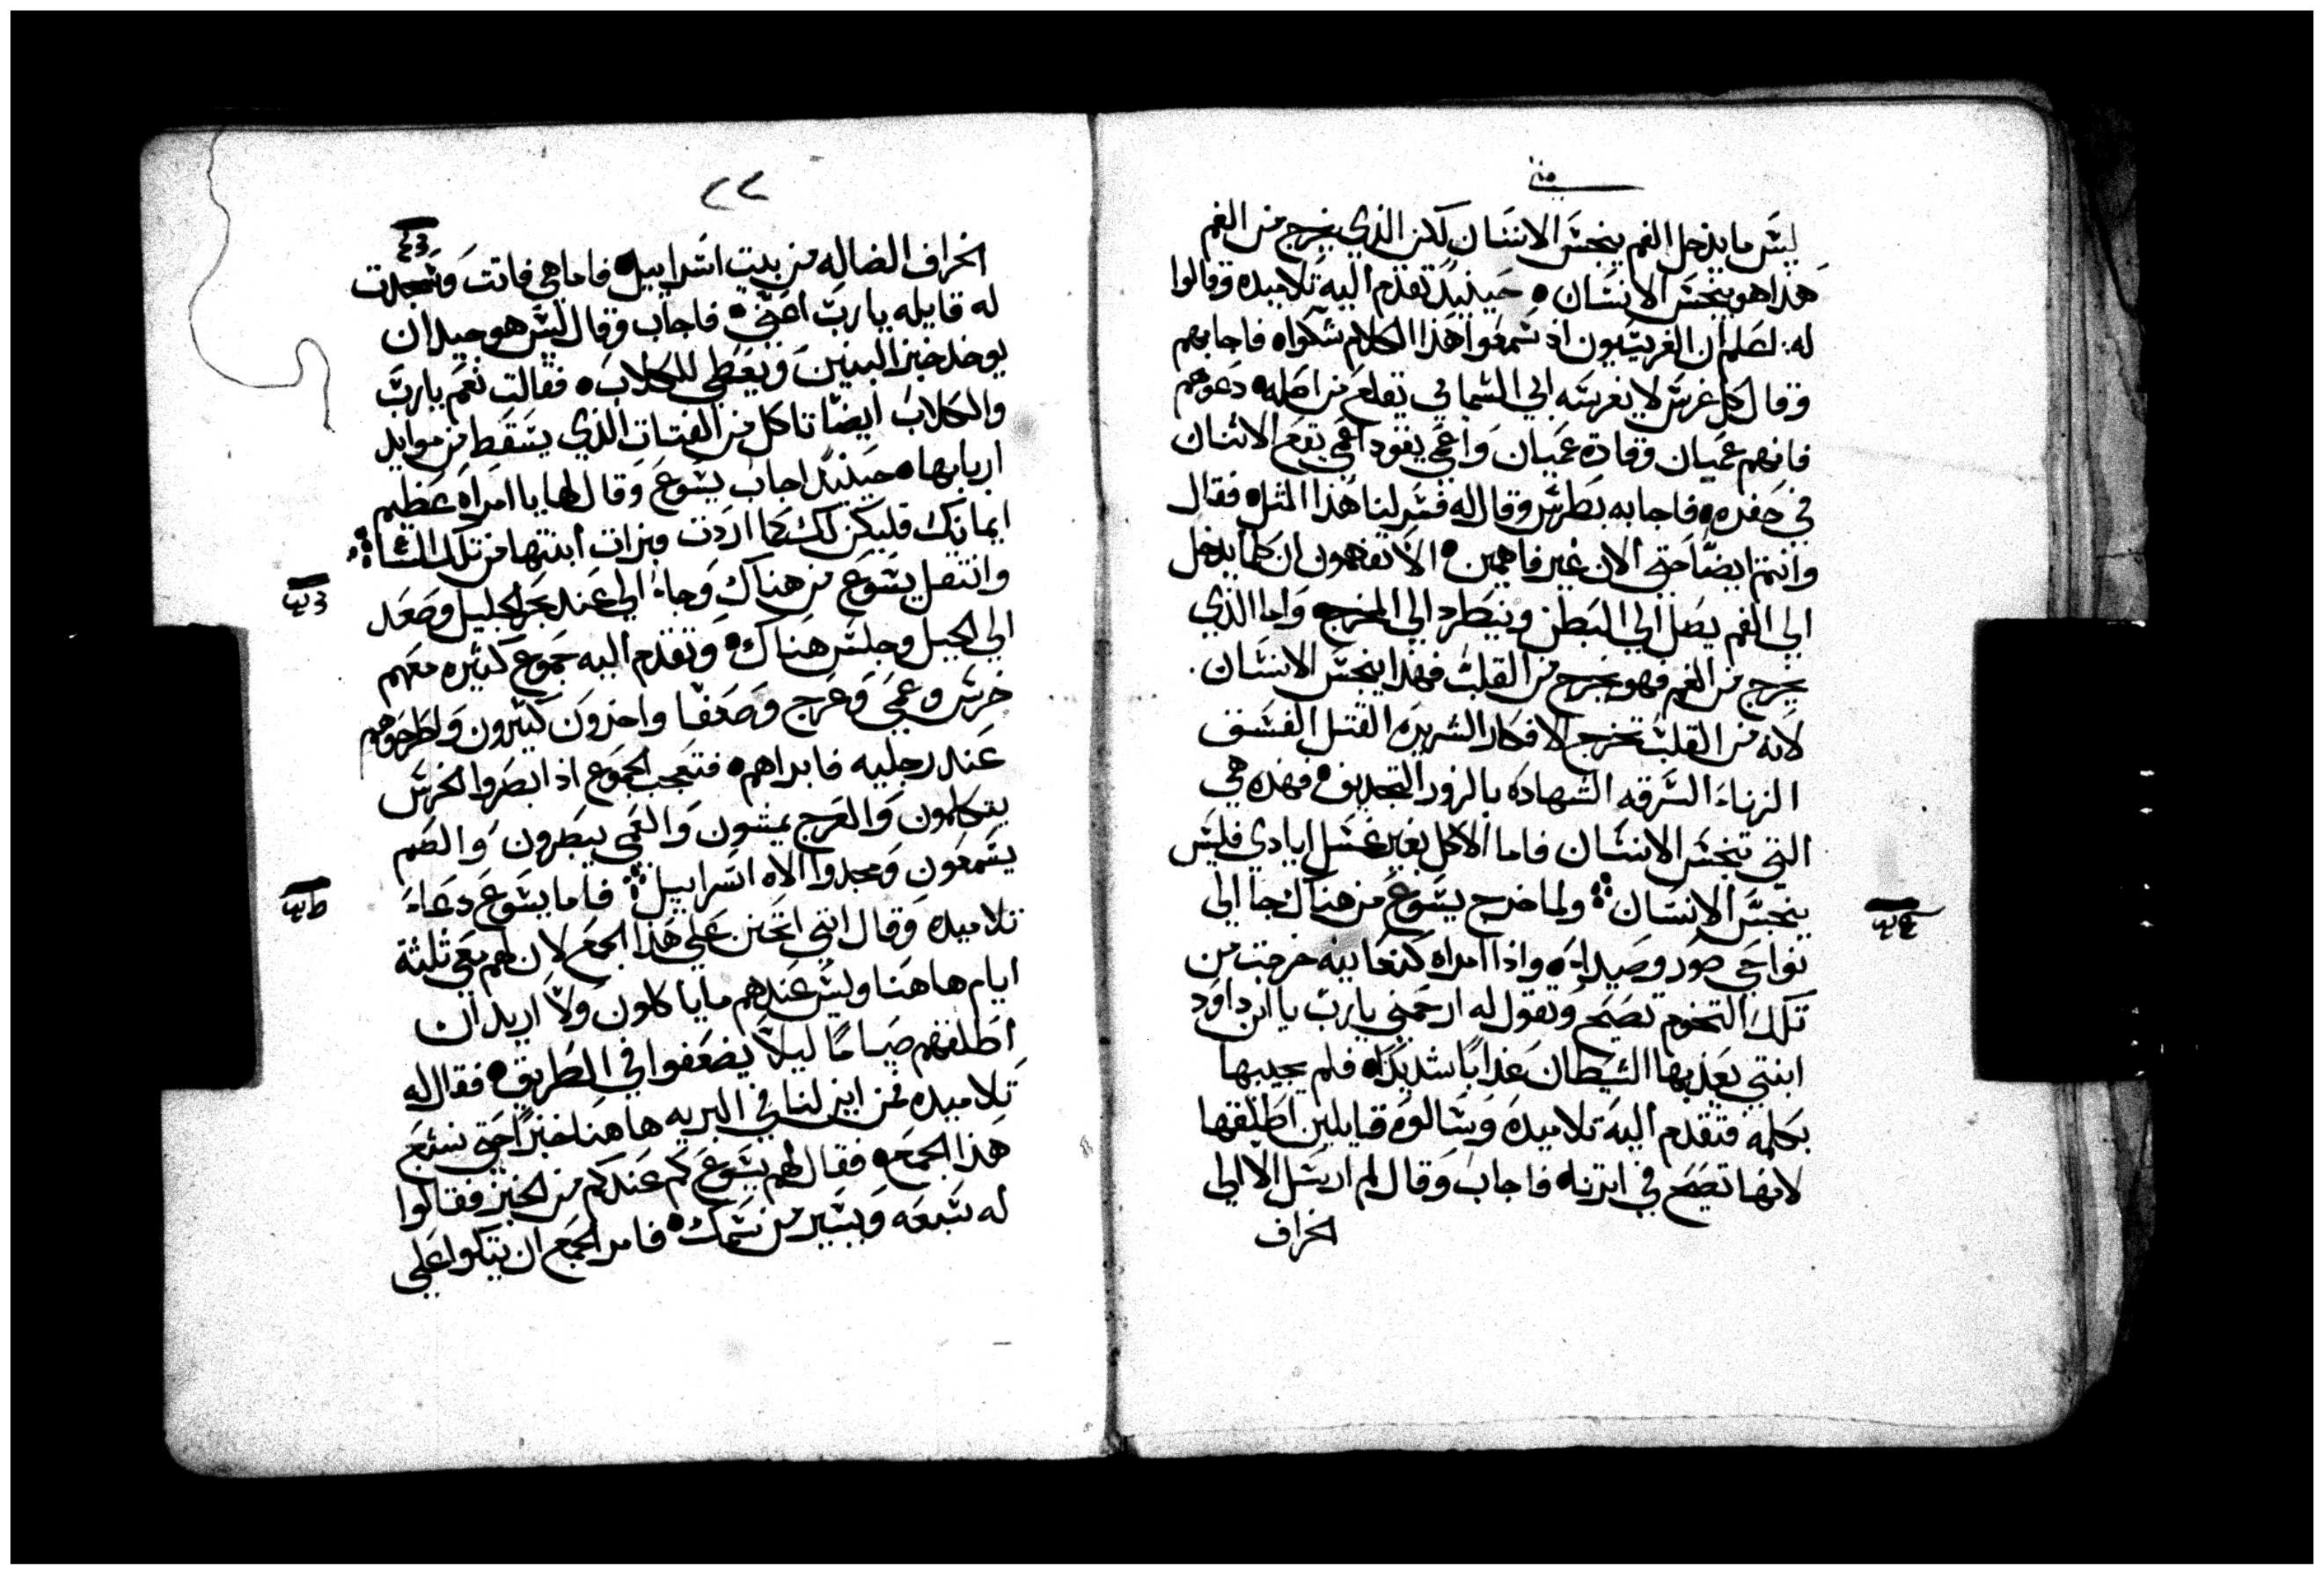 متى
ليس ما يدخل الفم ينجس الانسان لكن الذي يخرج من الفم
هذا هو ينجس الانسان حينيذ تقدم اليه تلاميذه وقالوا
له لعلم ان الفريسيون اذ سمعوا هذا الكلام شكواه فاجابهم
وقال كل غرس لا يغرسه ابي السمايي يقلع من اصله دعوهم
فانهم عميان وقادة عميان واعمي يقود اعمي يقع الاثنان
في حفره فاجابه بطرس وقال له فسر لنا هذا المثل فقال
وانتم ايضا حتي الان غير فاهمين الا تفهمون ان كلما يدخل
الي الفم يصل الي البطن وينطرد الي المخرج واما الذي
يخرج من الفم فهو يخرج من القلب فهذا ينجس الانسان
لانه من القلب تخرج الافكار الشريره القتل الفسق
الزناء السرقه الشهاده بالزور التجديف فهذه هي
التي تنجس الانسان فاما الاكل بغير غسل ايادي فليس
ينجس الانسان ولما خرج يسوع من هناك جا الي
نواحي صور وصيدا واذا امراه كنعانيه خرجت من
تلك التخوم تصيح وتقول له ارحمني يا رب يا ابن داود
ابنتي يعذبها الشيطان عذابا شديدا فلم يجيبها
بكلمه فتقدم اليه تلاميذه وسالوه قايلين اطلقها
لانها تصيح في اثرنا فاجاب وقال لم ارسل الا الي
الخراف
٢٢
الخراف الضاله من بيت اسراييل فاما هي فاتت وسجدت
له قايله يا رب اعني فاجاب وقال ليس هو جيد ان
يوخذ خبز البنين ويعطي للكلاب فقالت نعم يا رب
والكلاب ايضا تاكل من الفتات الذي يسقط من موايد
اربابها حينيذ اجاب يسوع وقال لها يا امراه عظيم
ايمانك فليكن لك كما اردت وبرات ابنتها من تلك الساعه
وانتقل يسوع من هناك وجاء الي عند بحر الجليل وصعد
الي الجبل وجلس هناك وتقدم اليه جموع كثيره معهم
خرس وعمي وعرج وضعفا واخرون كثيرون وطرحوهم
عند رجليه فابراهم فتعجب الجموع اذ ابصروا الخرس
يتكلمون والعرج يمشون والعمي يبصرون والصم
يسمعون ومجدوا الاه اسراييل فاما يسوع دعاء
تلاميذه وقال انني اتحنن علي هذا الجمع لان لهم معي ثلثة
ايام هاهنا وليس عندهم ما ياكلون ولا اريد ان
اطلقهم صياما ليلا يضعفوا في الطريق فقال له
تلاميذه من اين لنا في البريه هاهنا خبزا حتي نشبع
هذا الجمع فقال لهم يسوع كم عندكم من الخبز فقالوا
له سبعه ويسير من سمك فامر الجمع ان يتكوا علي